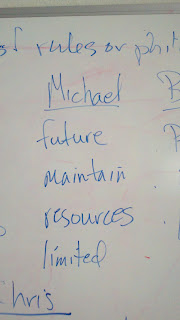 of rules or
Michael
future
maintain
resources
limited
Chris